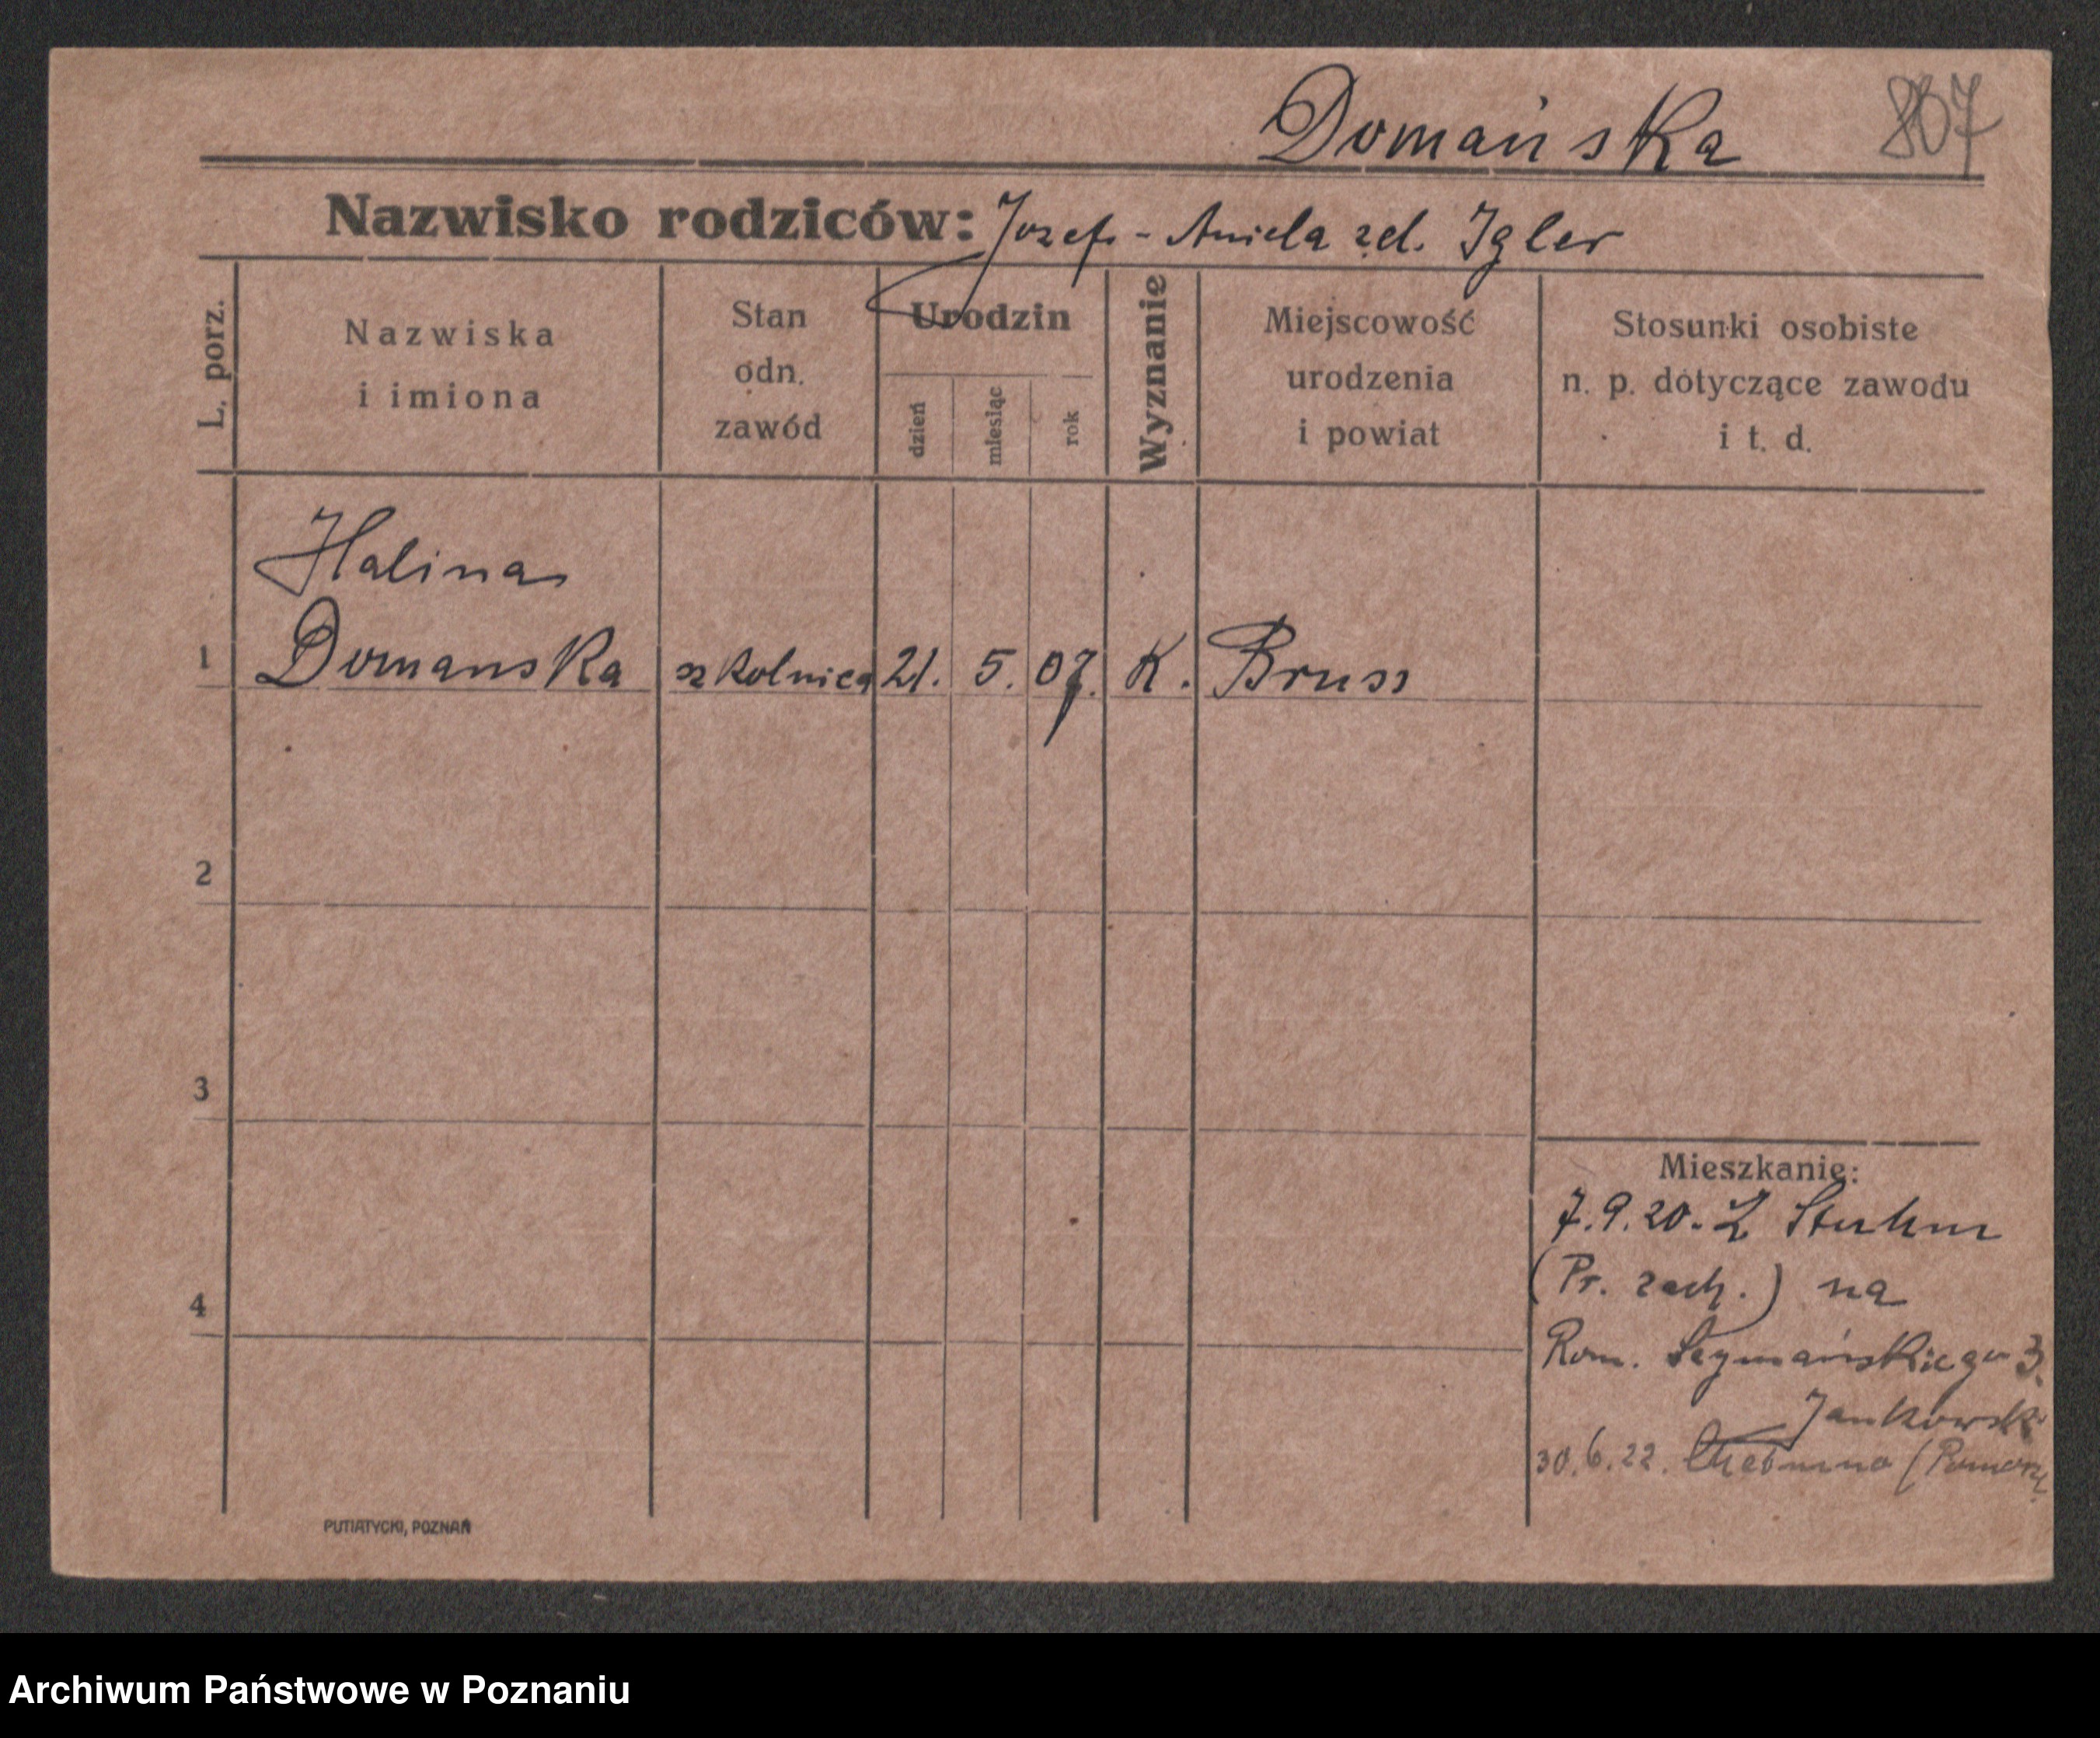 Domańska 807
Nazwisko rodziców: Józef - Aniela zd. Igler
L. porz.
Nazwiska
i imiona
Stan
odn.
zawód
Urodzin
dzień
miesiąc
rok
Wyznanie
Miejscowość
urodzenia
i powiat
Stosunki osobiste
n. p. dotyczące zawodu
i t. d.
Halina
1 Domanska szkolnica 21. 5. 07. K. Bruss
2
3
4
Mieszkanie:
7.9.20. Z Stuhm
(Pr. zach.) na
Rom. Szymańskiego 3.
Jankowski
30.6.22. Chełmno (Pomorze
PUTIATYCKI, POZNAŃ
Archiwum Państwowe w Poznaniu